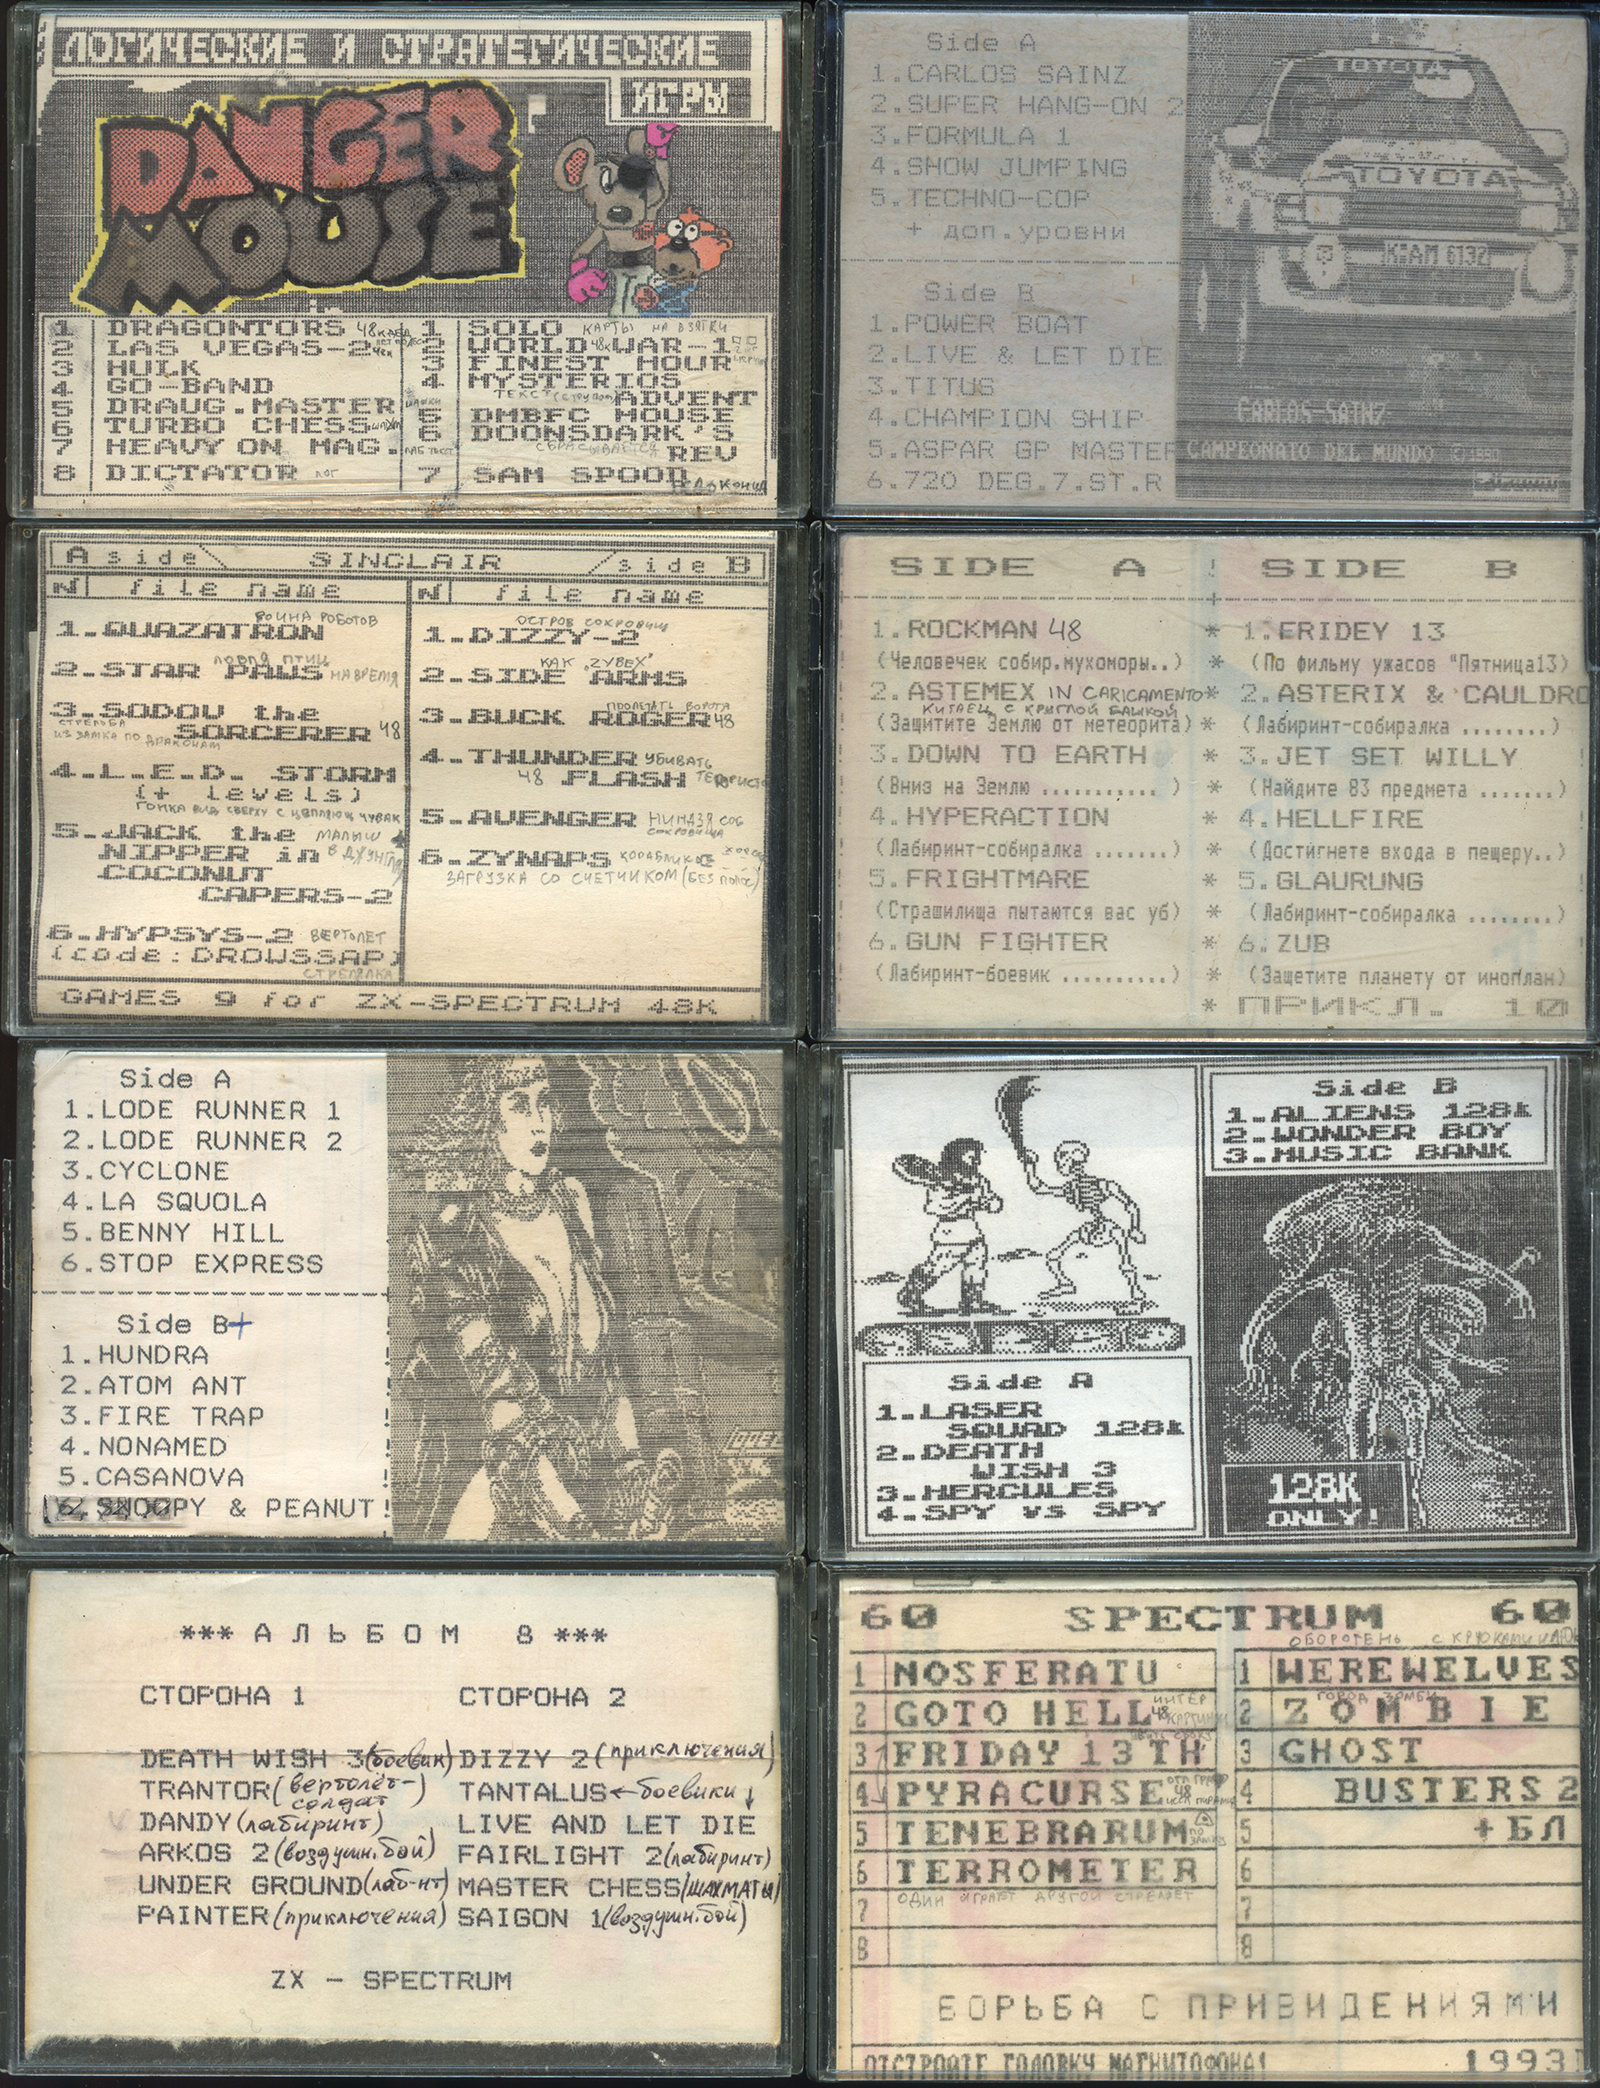 ЛОГИЧЕСКИЕ И СТРАТЕГИЧЕСКИЕ
ИГРЫ
DANGER
MOUSE
1 DRAGONTORS 48K
2 LAS VEGAS-2
3 HULK
4 GO-BAND
5 DRAUG.MASTER
6 TURBO CHESS
7 HEAVY ON MAG.
8 DICTATOR ЛОГ
1 SOLO КАРТЫ НА ВЗЯТКИ
2 WORLD WAR-1
48К
3 FINEST HOUR
4 MYSTERIOS
ТЕКСТ ADVENT
5 DMBFC HOUSE
6 DOONSDARK'S
СБРАСЫВАЕТСЯ REV
7 SAM SPOOD
Side A
1.CARLOS SAINZ
2.SUPER HANG-ON 2
3.FORMULA 1
4.SHOW JUMPING
5.TECHNO-COP
+ доп.уровни
Side B
1.POWER BOAT
2.LIVE & LET DIE
3.TITUS
4.CHAMPION SHIP
5.ASPAR GP MASTER
6.720 DEG.7.ST.R
TOYOTA
TOYOTA
K:AM 6132
SAINZ
CAMPEONATO DEL MUNDO © 1990
A side SINCLAIR side B
N file name
ВОЙНА РОБОТОВ
1.QUAZATRON
ЛОВЛЯ ПТИЦ
2.STAR PAWS НА ВРЕМЯ
3.SODOV the
СТРЕЛЬБА SORCERER 48
ИЗ ЗАМКА ПО ДРАКОНАМ
4.L.E.D. STORM
(+ levels)
ГОНКА ВИД СВЕРХУ С ЦЕПЛЯЮЩ ЧУВАК
5.JACK the МАЛЫШ
NIPPER in В ДЖУНГЛЯХ
COCONUT
CAPERS-2
6.HYPSYS-2 ВЕРТОЛЕТ
(code:DROWSSAP)
СТРЕЛЯЛКА
N file name
ОСТРОВ СОКРОВИЩ
1.DIZZY-2
КАК "ZYBEX"
2.SIDE ARMS
ПРОЛЕТАТЬ ВОРОТА
3.BUCK ROGER 48
4.THUNDER УБИВАТЬ
48 FLASH
5.AVENGER НИНДЗЯ СОБ
СОКРОВИЩА
6.ZYNAPS КОРАБЛИК
ЗАГРУЗКА СО СЧЕТЧИКОМ (БЕЗ ПОЛОС)
GAMES 9 for ZX-SPECTRUM 48K
SIDE A ! SIDE B
1.ROCKMAN 48 * 1.FRIDEY 13
(Человечек собир.мухоморы..) * (По фильму ужасов "Пятница13)
2.ASTEMEX IN CARICAMENTO * 2.ASTERIX & CAULDRO
КИТАЕЦ С КРУГЛОЙ БАШКОЙ
(Защитите Землю от метеорита) * (Лабиринт-собиралка ........)
3.DOWN TO EARTH * 3.JET SET WILLY
(Вниз на Землю ........... ) * (Найдите 83 предмета .......)
4.HYPERACTION * 4.HELLFIRE
(Лабиринт-собиралка .......) * (Достигнете входа в пещеру..)
5.FRIGHTMARE * 5.GLAURUNG
(Страшилища пытаются вас уб) * (Лабиринт-собиралка ........)
6.GUN FIGHTER * 6.ZUB
(Лабиринт-боевик ..........) * (Защетите планету от иноплан)
* ПРИКЛ. 10
Side A
1.LODE RUNNER 1
2.LODE RUNNER 2
3.CYCLONE
4.LA SQUOLA
5.BENNY HILL
6.STOP EXPRESS
Side B+
1.HUNDRA
2.ATOM ANT
3.FIRE TRAP
4.NONAMED
5.CASANOVA
6.SNOOPY & PEANUT!
Side B
1.ALIENS 128k
2.WONDER BOY
3.MUSIC BANK
Side A
1.LASER
SQUAD 128k
2.DEATH
WISH 3
3.HERCULES
4.SPY vs SPY
128K
ONLY!
*** АЛЬБОМ 8 ***
СТОРОНА 1 СТОРОНА 2
DEATH WISH 3(боевик) DIZZY 2 (приключения)
TRANTOR(вертолёт-солдат) TANTALUS←боевики↓
DANDY(лабиринт) LIVE AND LET DIE
ARKOS 2(воздушн.бой) FAIRLIGHT 2(лабиринт)
UNDER GROUND(лаб-нт) MASTER CHESS(ШАХМАТЫ)
PAINTER(приключения) SAIGON 1(воздушн.бой)
ZX - SPECTRUM
60 SPECTRUM 60
ОБОРОТЕНЬ С КРЮКАМИ
1 NOSFERATU
2 GOTO HELL 48
3 FRIDAY 13 TH
4 PYRACURSE 48
5 TENEBRARUM
6 TERROMETER
ОДИН ИГРАЕТ ДРУГОЙ СТРЕЛЯЕТ
7
8
1 WEREWELVES
ГОРОД ЗОМБИ
2 ZOMBIE
3 GHOST
4 BUSTERS 2
5 +БЛ
6
7
8
БОРЬБА С ПРИВИДЕНИЯМИ
ОТСТРОЙТЕ ГОЛОВКУ МАГНИТОФОНА! 1993